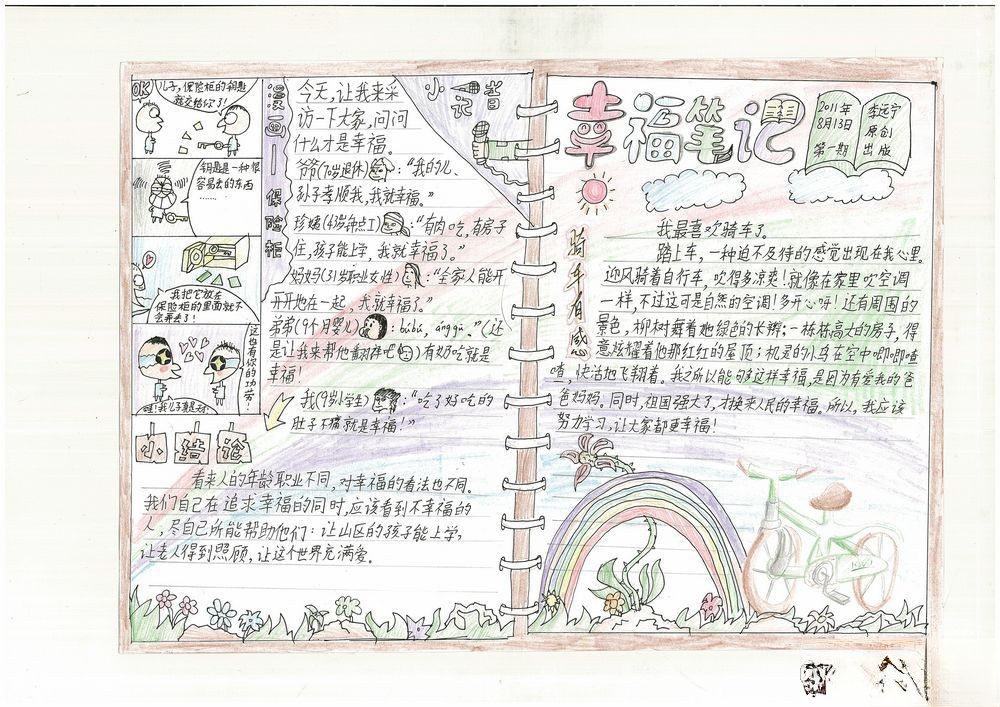 OK
儿子,保险柜的钥匙
就交给你了!
钥匙是一种很
容易丢的东西
……
我把它放在
保险柜的里面就不
会弄丢了!
这也有你的功劳!
哇!我儿子真是天才
漫画|保险柜
小记者
今天,让我来采
访一下大家,问问
什么才是幸福。
爷爷(70岁退休):“我的儿、
孙子孝顺我,我就幸福。”
珍姨(43岁钟点工):“有肉吃,有房子
住,孩子能上学,我就幸福了。”
妈妈(31岁职业女性):“全家人能开
开开地在一起,我就幸福了。”
弟弟(9个月婴儿):
是让我来帮他翻译吧)有奶吃就是
幸福!
我(9岁小学生):“吃了好吃的
肚子不痛就是幸福!”
小结论
看来人的年龄职业不同,对幸福的看法也不同。
我们自己在追求幸福的同时,应该看到不幸福的
人,尽自己所能帮助他们:让山区的孩子能上学,
让老人得到照顾,让这个世界充满爱。
幸福笔记
2011年
8月13日
第一期
李远宁
原创
出版
骑车有感
我最喜欢骑车了。
踏上车,一种迫不及待的感觉出现在我心里。
迎风骑着自行车,吹得多凉爽!就像在家里吹空调
一样,不过这可是自然的空调!多开心呀!还有周围的
景色,柳树舞着她绿色的长辫;一栋栋高大的房子,得
意炫耀着他那红红的屋顶;机灵的小鸟在空中唧唧喳
喳,快活地飞翔着。我之所以能够这样幸福,是因为有爱我的爸
爸妈妈。同时,祖国强大了,才换来人民的幸福。所以,我应该
努力学习,让大家都更幸福!